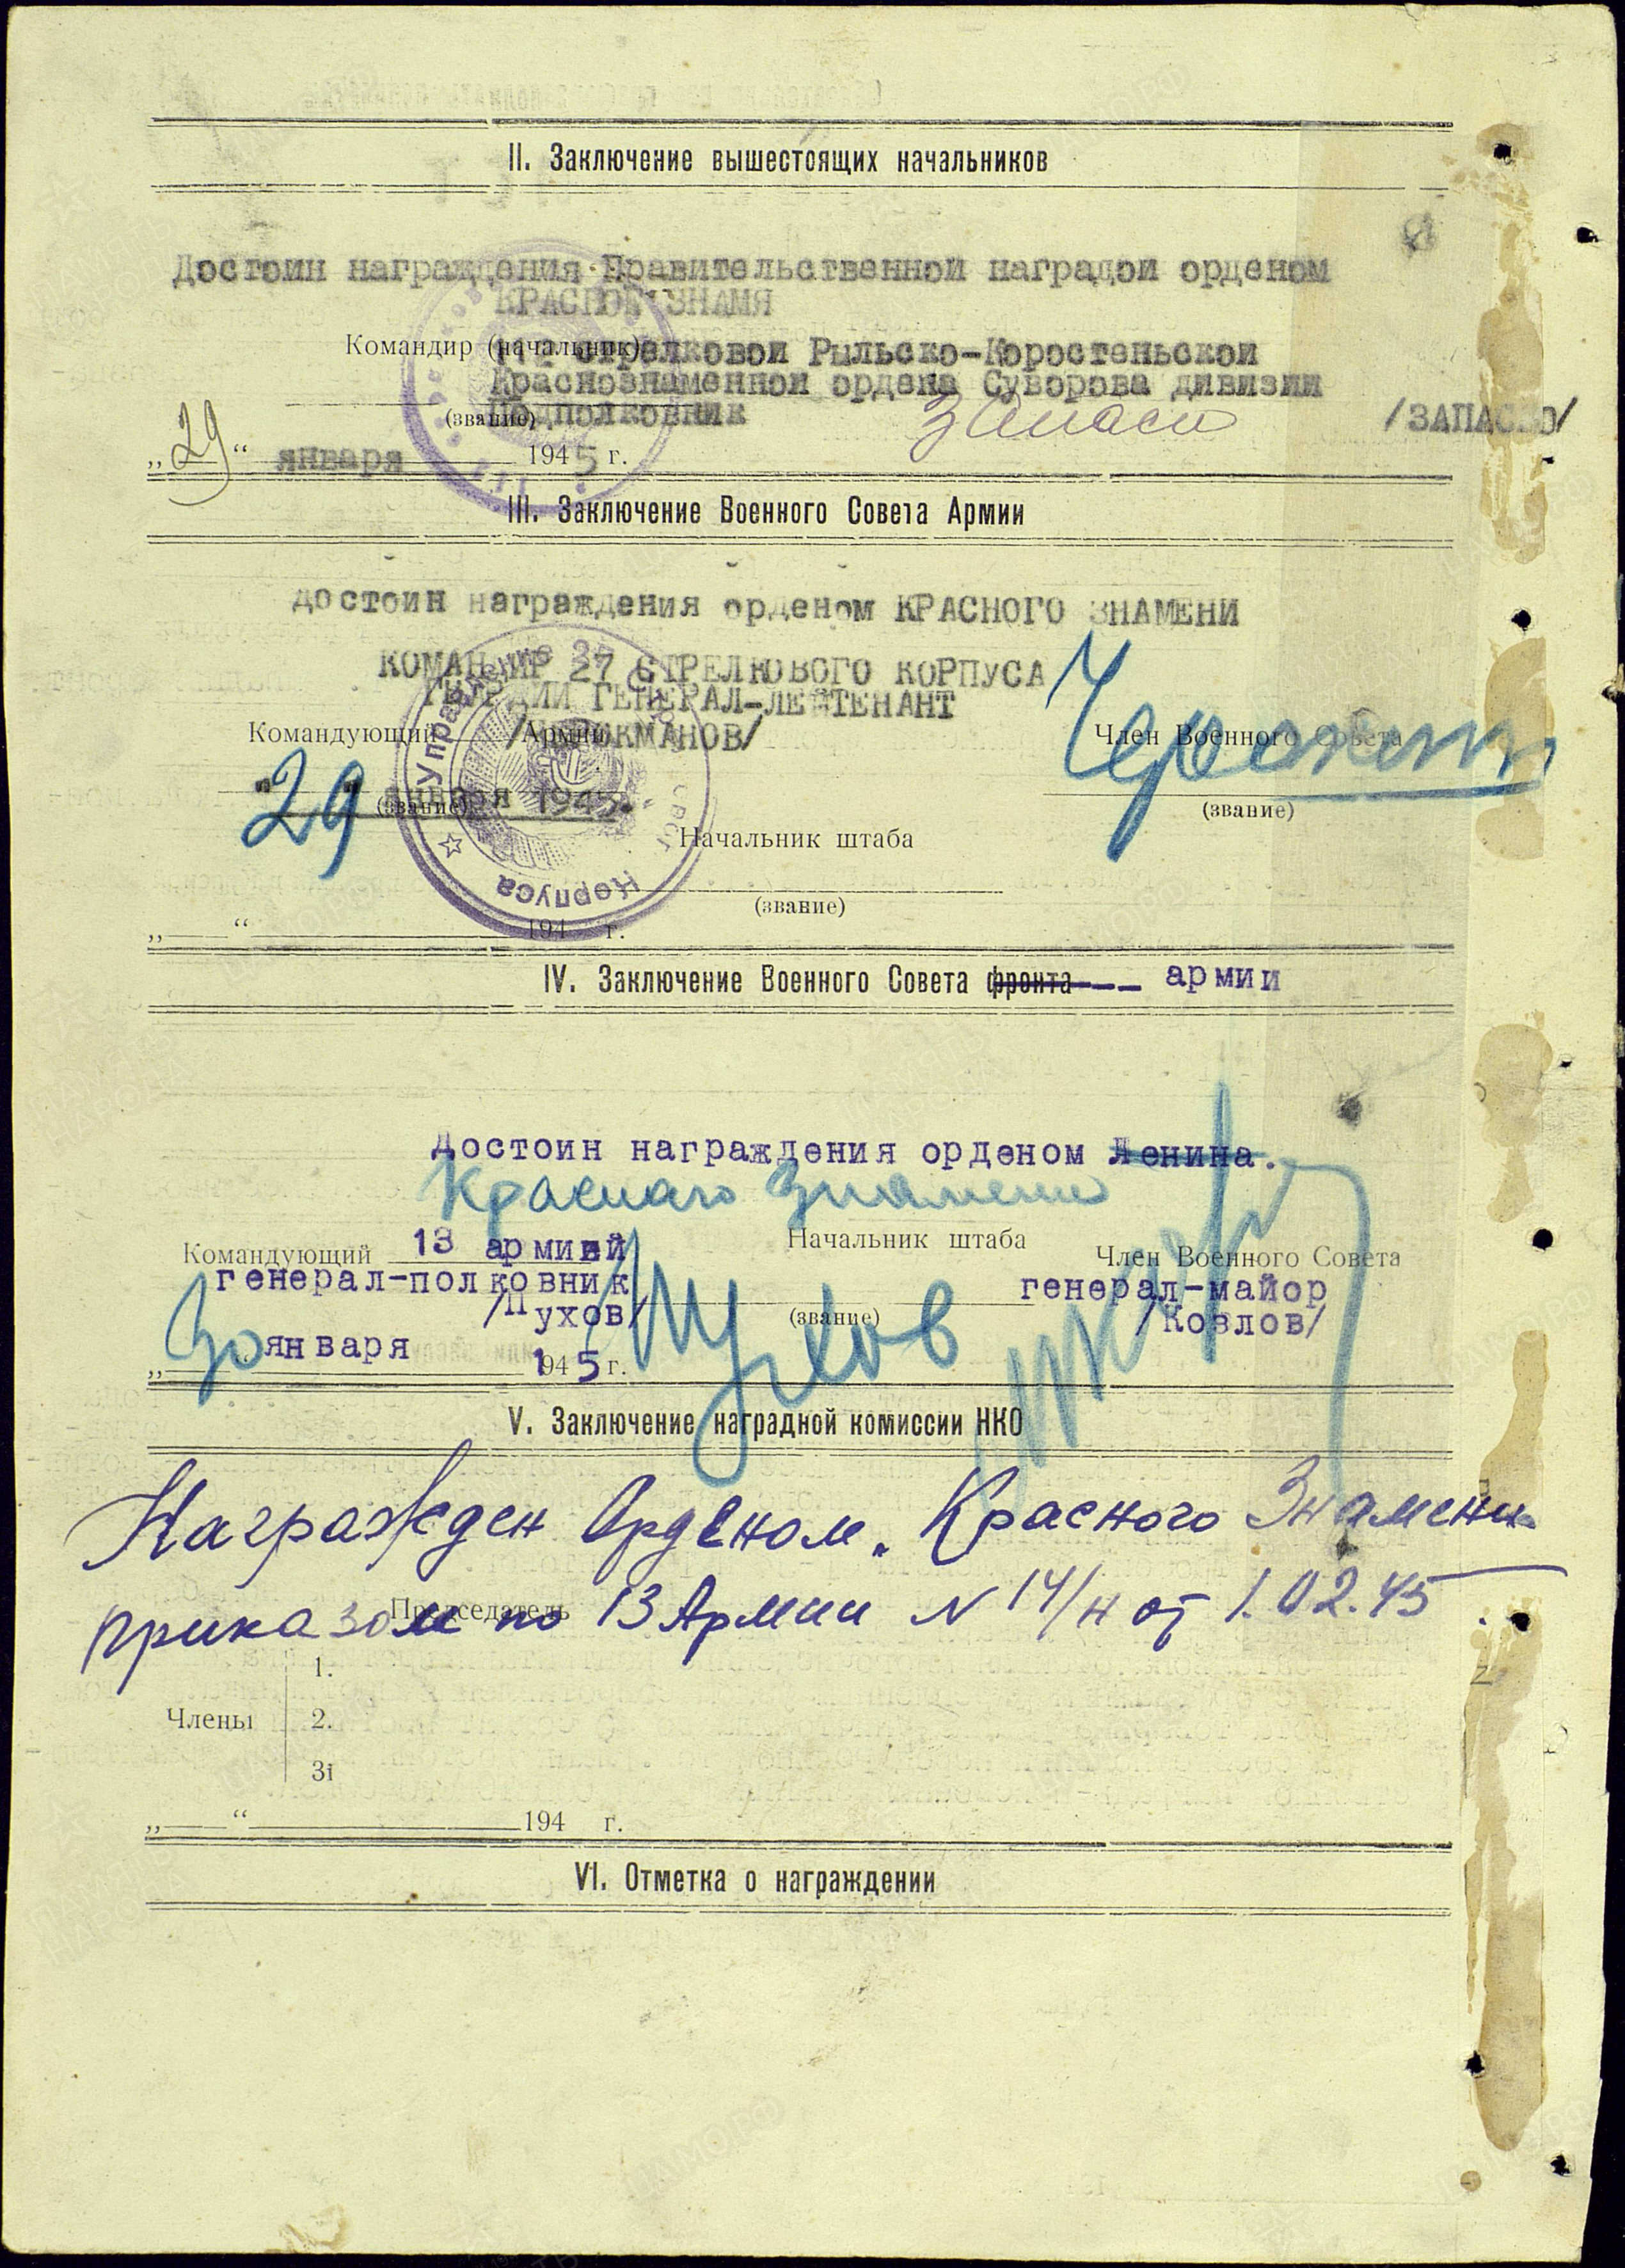 II. Заключение вышестоящих начальников
Достоин награждения Правительственной наградой орденом
КРАСНОЕ ЗНАМЯ
Командир (начальник) стрелковой Рыльско-Коростеньской
Краснознаменной ордена Суворова дивизии
(звание) Подполковник /ЗАПАСКО/
„29“ января 1945 г.
III. Заключение Военного Совета Армии
достоин награждения орденом КРАСНОГО ЗНАМЕНИ
КОМАНДИР 27 СТРЕЛКОВОГО КОРПУСА
ГВАРДИИ ГЕНЕРАЛ-ЛЕЙТЕНАНТ
Командующий Армии /ЧЕРОКМАНОВ/ Член Военного Совета
"29" января 1945г.
(звание) (звание)
Начальник штаба
(звание)
„ “ 194 г.
Управление Корпуса
IV. Заключение Военного Совета фронта--- армии
Достоин награждения орденом Ленина.
Красного Знамени
Командующий 13 армией Начальник штаба Член Военного Совета
генерал-полковник генерал-майор
/Пухов/ (звание) /Козлов/
Пухов
„30 января 1945 г.
V. Заключение наградной комиссии НКО
Награжден Орденом „Красного Знамени
приказом по 13 Армии N 14/н от 1.02.45
Председатель
1.
Члены 2.
3i
„ “ 194 г.
VI. Отметка о награждении